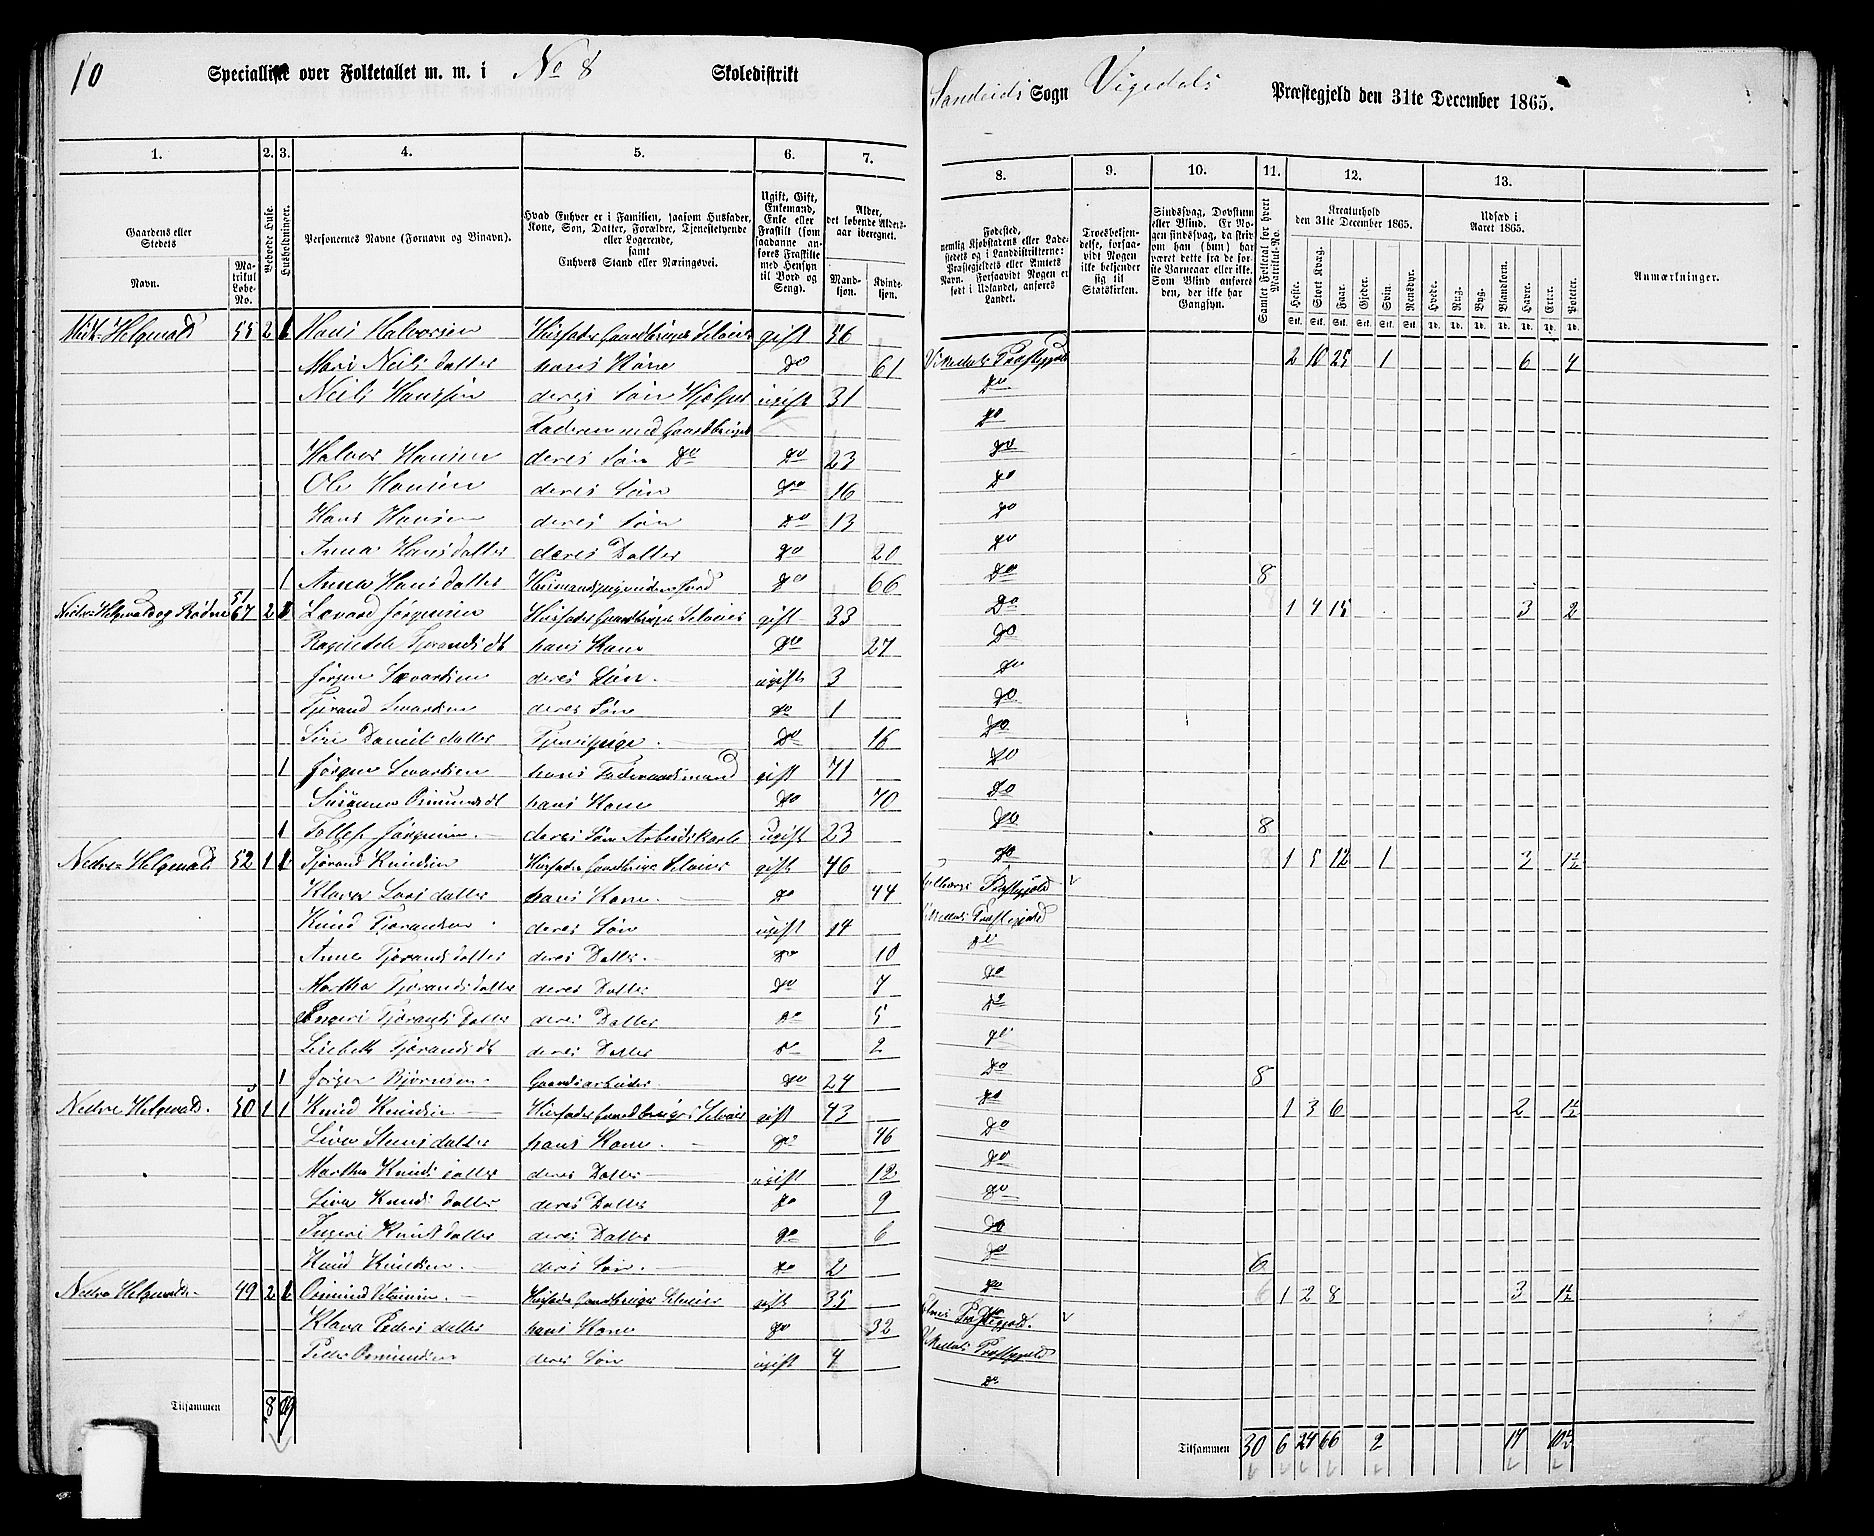 10
Specialliste over Folketallet m. m. i No 8 Skoledistrikt
Sandeids Sogn Vigedals Præstegjeld den 31te December 1865.
1. 2. 3. 4. 5. 6. 7.
8. 9. 10. 11. 12. 13.
Gaardens eller Stedets
Navn. Matrikul Løbe-No.
Beboede Huse.
Husholdninger.
Personernes Navne (Fornavn og Binavn).
Hvad Enhver er i Familien, saasom Husfader, Kone, Søn, Datter, Forældre, Tjenestetyende eller Logerende, samt Enhvers Stand eller Næringsvei.
Ugift, Gift, Enkemand, Enke eller Fraskilt (som saadanne anføres Fraskilte med Hensyn til Bord og Seng).
Alder, det løbende Aldersaar iberegnet.
Mandkjøn. Kvindekjøn.
Fødested, nemlig Kjøbstadens eller Ladestedets og i Landdistrikterne: Præstegjeldets eller Amtets Navn. Forsaavidt Nogen er født i Udlandet, anføres Landet.
Troesbekjendelse, forsaavidt Nogen ikke bekjender sig til Statskirken.
Sindssvag, Døvstum eller Blind. Er Nogen sindssvag, da skrives om han (hun) har været dette fra de første Barneaar eller ikke. Som Blind anføres den, der ikke har Gangsyn.
Samlet Folketal for hvert Matrikul-No.
Kreaturhold den 31te December 1865.
Heste. Stort Kvæg. Faar. Gjeder. Svin. Rensdyr.
Udsæd i Aaret 1865.
Hvede. Rug. Byg. Blandkorn. Havre. Erter. Poteter.
Anmærkninger.
Midt-Helgevold 55 2 1 Hans Halvorsen Husfader Gaardbruger Selveier gift 56 2 10 25 1 6 4
Mari Neils datter hans Kone do 61 do
Neils Hanssen deres Søn Hjelper ugift 31 do
Faderen med Gaardbruget
Halvor Hansen deres Søn do do 23 do
Ole Hansen deres Søn do 16 do
Hans Hansen deres Søn do 13 do
Anna Hans datter deres Datter do 20 do
1 Anna Hans datter do 66 do 8
Nedre-Helgevold og Rødne 51 67 2 1 Lavard Jørgensen Husfader Gaardbruger Selveier gift 33 do 1 4 15 3 2
Tjørands dt hans Kone do 27 do
Jørgen deres Søn. ugift 3 do
Tjørand deres Søn do 1 do
Siri Daniels datter Tjenestpige. do 16 do
1 Jørgen hans gift 71 do
Susanna Osmunds dt hans Kone do 70 do
1 Tollef Jørgensen. deres Søn Arbeidskarle ugift 23 do 8
Nedre-Helgevold 52 1 1 Tjørand Knudsen Husfader Gaardbruger Selveier gift 46 do 1 5 12 1 2 1½
Klara Lars datter hans Kone. do 44 Præstegjeld
Knud Tjørandsen deres Søn ugift 14 Præstegjeld
Anna Tjørands datter deres Datter. do 10 do
Martha Tjørands datter deres Datter do 7 do
Ingeri Tjørands Datter deres Datter do 5 do
Lisebeth Tjørands dt deres Datter do 2 do
1 Jørgen Bjørnsen. Gaardsarbeider. do 24 do 8
Nedre Helgevold. 50 1 1 Knud Knudsen Husfader Gaardbruger Selveier gift 43 do 1 3 6 2 1½
Liva Stens datter hans Kone. do 46 do
Martha Knuds datter deres Datter ugift 12 do
Liva Knuds datter deres Datter do 9 do
Ingeri Knuds datter deres Datter do 6 do
Knud Knudsen. deres Søn. do 2 do 6
Nedre Helgevold. 49 2 1 Osmund Husfader Gaardbruger Selveier gift 35 do 1 2 8 3 1½
Klara Peders datter hans Kone do 32 Præstegjeld.
Peder Osmundsen deres Søn ugift 4 Præstegjeld
do
Tilsammen 8 9
Tilsammen 30 6 24 66 2 17 10½